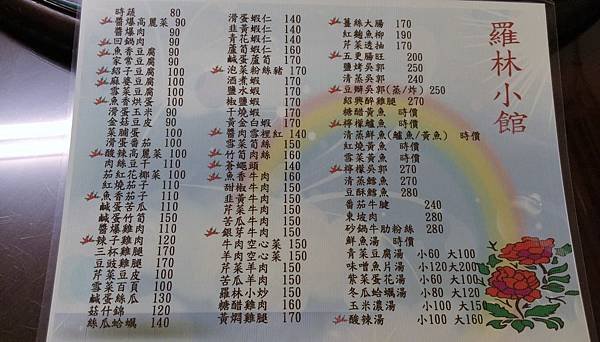 羅林小館
時蔬 80
醬爆高麗菜 90
醬爆肉 90
回鍋肉 90
魚香豆腐 100
家常豆腐 100
紹子豆腐 100
麻婆豆腐 100
雪菜豆腐 100
魚香烘蛋 100
滑蛋玉米 100
金菇豆皮 100
菜脯蛋 100
滑蛋番茄 100
酸辣高麗菜 100
肉絲豆干 110
茄紅花椰菜 100
紅燒茄子 110
魚香茄子 110
鹹蛋苦瓜 110
鹹蛋竹筍 150
醬爆雞肉 110
辣子雞肉 120
三杯雞腿 170
豆豉雞腿 170
芹菜豆皮 100
雪菜百頁 100
鹹蛋絲瓜 130
菇什錦 120
絲瓜蛤蠣 140
滑蛋蝦仁 140
韭黃蝦仁 140
青花蝦仁 140
蘆筍蝦仁 160
鹹蛋蘆筍 160
泡菜粉絲豬 170
酒煮蝦 170
鹽水蝦 170
椒鹽蝦 170
干燒蝦 170
黃金白蝦 170
醬肉雪裡紅 140
雪菜筍絲 150
竹筍肉絲 160
蒼蠅頭 140
魚香牛肉 160
甜椒牛肉 150
韭黃牛肉 150
芹菜牛肉 150
苦瓜牛肉 150
銀芽牛肉 150
牛肉空心菜 150
羊肉空心菜 150
芹菜羊肉 150
苦瓜羊肉 150
羅林小炒 150
糖醋雞肉 160
黃燜雞腿 170
薑絲大腸 170
紅麴魚柳 190
芹菜透抽 170
五更腸旺 200
鹽烤吳郭 200
清蒸吳郭 240
豆瓣吳郭(蒸/炸) 250
紹興醉雞腿 170
糖醋黃魚 時價
檸檬鱸魚 時價
清蒸鮮魚(鱸魚/黃魚) 時價
紅燒黃魚 時價
雪菜黃魚 時價
檸檬吳郭 270
清蒸鱈魚 280
豆酥鱈魚 280
番茄牛腱 240
東坡肉 280
砂鍋牛肋粉絲 280
鮮魚湯 時價
青菜豆腐湯 小60 大100
味噌魚片湯 小120大200
紫菜蛋花湯 小60 大100
冬瓜蛤蠣湯 小80 大120
玉米濃湯 小100 大150
酸辣湯 小100 大160